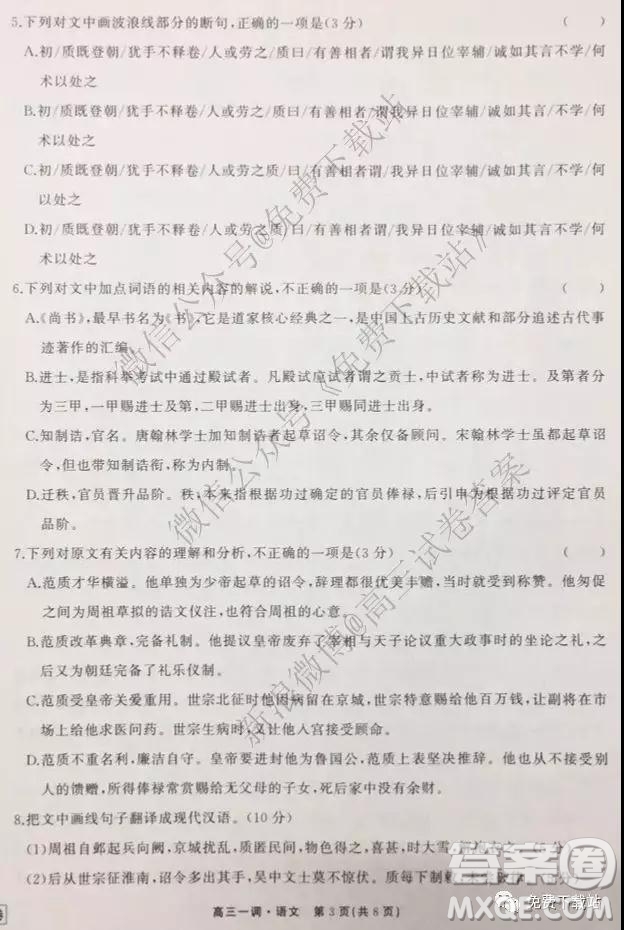 5.下列对文中画波浪线部分的断句,正确的一项是(3分) (　　)
A.初/质既登朝/犹手不释卷/人或劳之/质曰/有善相者/谓我异日位宰辅/诚如其言/不学/何
术以处之
B.初/质既登朝/犹手不释卷/人或劳之/质曰/有善相者/谓我异日位宰辅/诚如其言/不学/何
术以处之
C.初/质既登朝/犹手不释卷/人或劳之/质曰/有善相者谓/我异日位宰辅/诚如其言/不学/何
术以处之
D.初/质既登朝/犹手不释卷/人或劳之/质曰/有善相者谓/我异日位宰辅/诚如其言不学/何
术以处之
6.下列对文中加点词语的相关内容的解说,不正确的一项是(3分) (　　)
A.《尚书》,最早书名为《书》,它是道家核心经典之一,是中国上古历史文献和部分追述古代事
迹著作的汇编。
B.进士,是指科举考试中通过殿试者。凡殿试应试者谓之贡士,中试者称为进士。及第者分
为三甲,一甲赐进士及第,二甲赐进士出身,三甲赐同进士出身。
C.知制诰,官名。唐翰林学士加知制诰者起草诏令,其余仅备顾问。宋翰林学士虽都起草诏
令,但带知制诰衔,称为内制。
D.迁秩,官员晋升品阶。秩,本来指根据功过确定的官员俸禄,后引申为根据功过评定官员
品阶。
7.下列对原文有关内容的理解和分析,不正确的一项是(3分) (　　)
A.范质才华横溢。他单独为少帝起草的诏令,辞理都很优美丰赡,当时就受到称赞。他匆促
之间为周祖草拟的诰文仪注,也符合周祖的心意。
B.范质改革典章,完备礼制。他提议皇帝废弃了宰相与天子论议重大政事时的坐论之礼,之
后又为朝廷完备了礼乐仪制。
C.范质受皇帝关爱重用。世宗北征时他因病留在京城,世宗特意赐给他百万钱,让副将在市
场上给他求医问药。世宗生病时,又让他入宫接受顾命。
D.范质不重名利,廉洁自守。皇帝要进封他为鲁国公,范质上表坚决推辞。他从不接受别人
的馈赠,所得俸禄常赏赐给无父母的子女,死后家中没有余财。
8.把文中画线句子翻译成现代汉语。(10分)
(1)周祖自邺起兵向阙,京城扰乱,质匿民间,物色得之,喜甚,时大雪
(2)后从世宗征淮南,诏令多出其手,吴中文士莫不惊伏。质每下制敕
高三一调·语文　第3页(共8页)
微信公众号@免费下载站
微信公众号《免费下载站》
新浪微博@高三试卷答案
答案圈
MXQE.COM
免费下载站